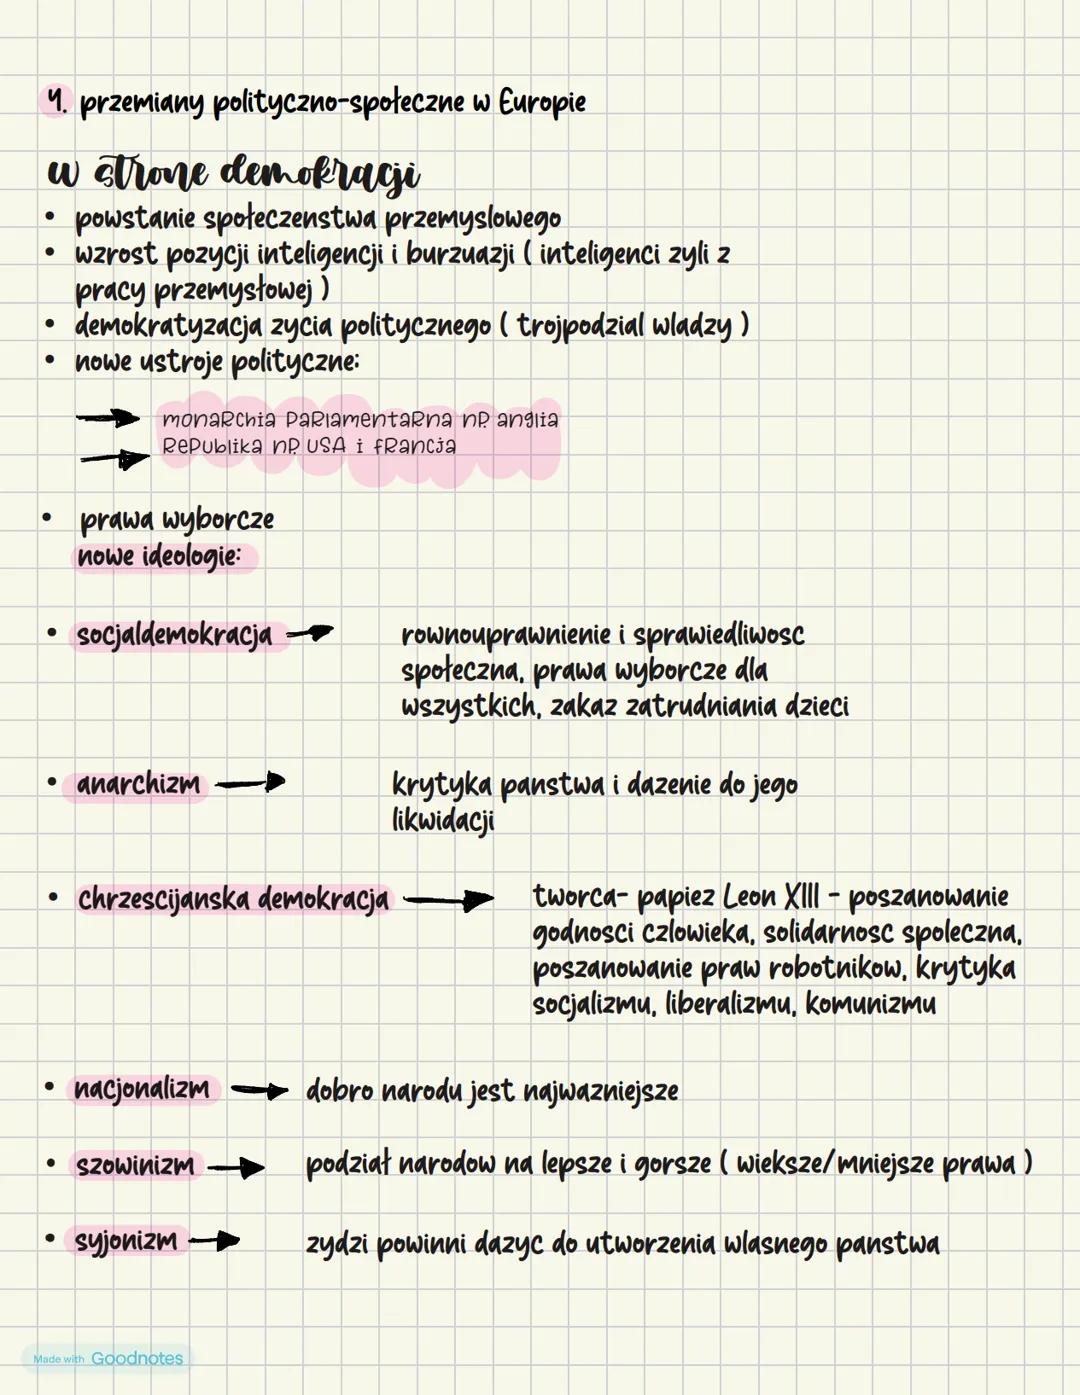 4. przemiany polityczno-społeczne w Europie
w strone demokracji
• powstanie społeczenstwa przemyslowego
• wzrost pozycji inteligencji i burzuazji ( inteligenci zyli z
pracy przemysłowej )
• demokratyzacja zycia politycznego ( trojpodzial wladzy )
• nowe ustroje polityczne:
monarchia parlamentarna np. anglia
Republika np. USA i francja
• prawa wyborcze
nowe ideologie:
• socjaldemokracja
rownouprawnienie i sprawiedliwosc
społeczna, prawa wyborcze dla
wszystkich, zakaz zatrudniania dzieci
• anarchizm
krytyka panstwa i dazenie do jego
likwidacji
• chrzescijanska demokracja
tworca- papiez Leon XIII - poszanowanie
godnosci czlowieka, solidarnosc spoleczna,
poszanowanie praw robotnikow, krytyka
socjalizmu, liberalizmu, komunizmu
• nacjonalizm
dobro narodu jest najwazniejsze
• szowinizm
podział narodow na lepsze i gorsze ( wieksze/mniejsze prawa )
• syjonizm
zydzi powinni dazyc do utworzenia wlasnego panstwa
Made with Goodnotes